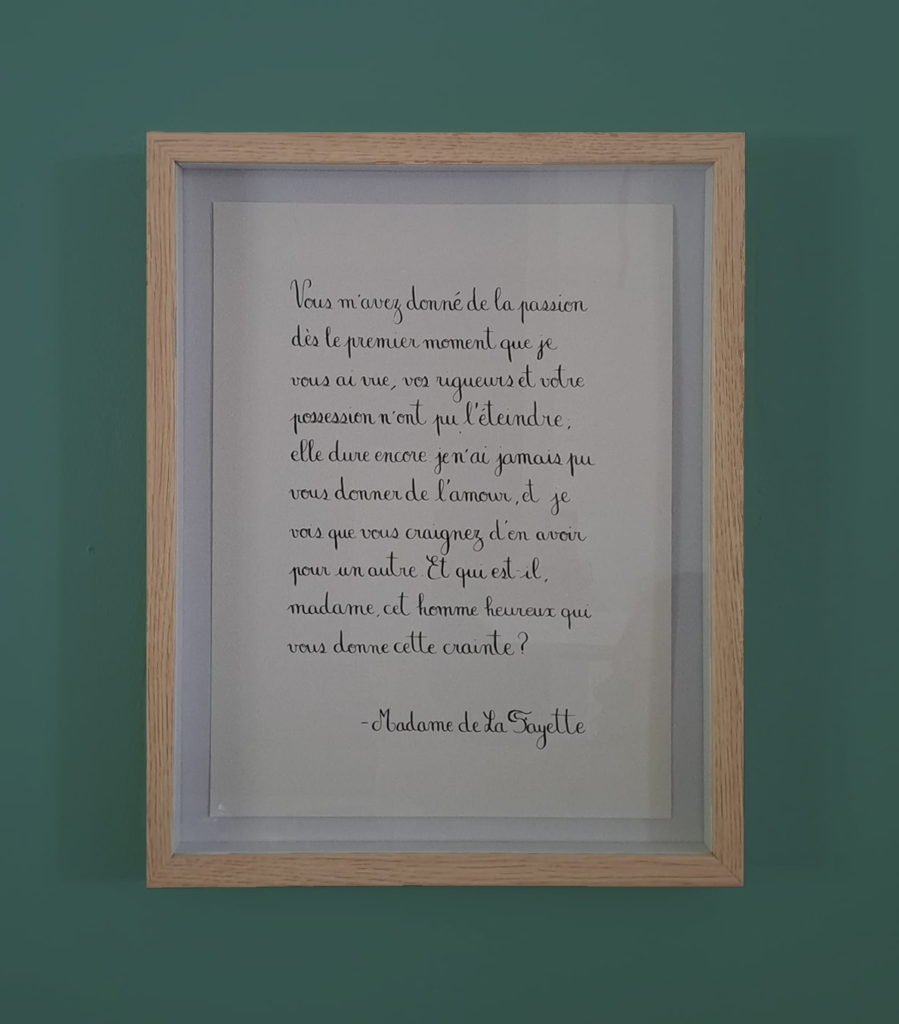 Vous m'avez donné de la passion
dès le premier moment que je
vous ai vue, vos rigueurs et votre
possession n'ont pu l'éteindre,
elle dure encore je n'ai jamais pu
vous donner de l'amour, et je
vois que vous craignez d'en avoir
pour un autre. Et qui est-il,
madame, cet homme heureux qui
vous donne cette crainte ?
-Madame de La Fayette